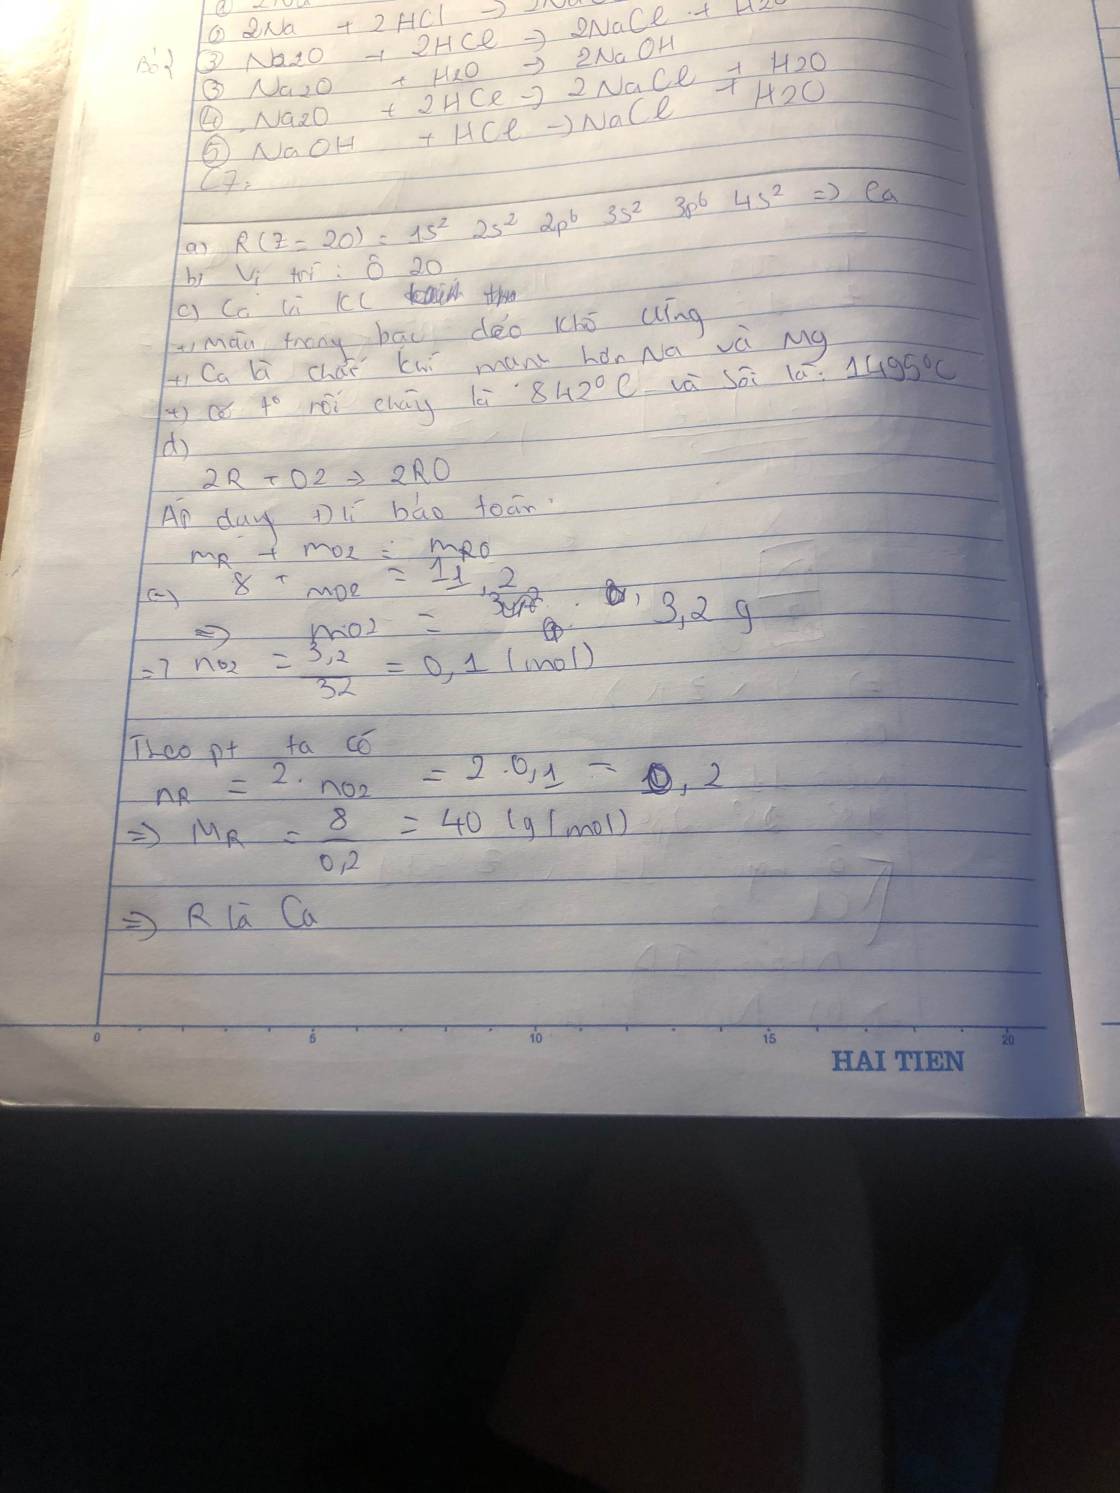 ① 2Na + 2HCl → 2NaCl + H2O
② Na2O + 2HCl → 2NaCl
③ Na2O + H2O → 2NaOH
④ Na2O + 2HCl → 2NaCl + H2O
⑤ NaOH + HCl → NaCl + H2O
C7:
a) R (Z = 20) = 1s² 2s² 2p⁶ 3s² 3p⁶ 4s² => Ca
b) Vị trí : Ô 20
c) Ca là KL
+, Màu trắng bạc dẻo khô cứng
+, Ca là chất khử mạnh hơn Na và Mg
+) có t° nói chảy là 842°C và sôi là: 1495°C
d)
2R + O2 → 2RO
Áp dụng Đlí bảo toàn:
mR + mO2 = mRO
(=) 8 + mO2 = 11,2
=> mO2 = 3,2 g
=> nO2 = 3,2/32 = 0,1 (mol)
Theo pt ta có
nR = 2. nO2 = 2.0,1 = 0,2
=> MR = 8/0,2 = 40 (g/mol)
=> R là Ca
0 5 10 15 20
HAI TIEN